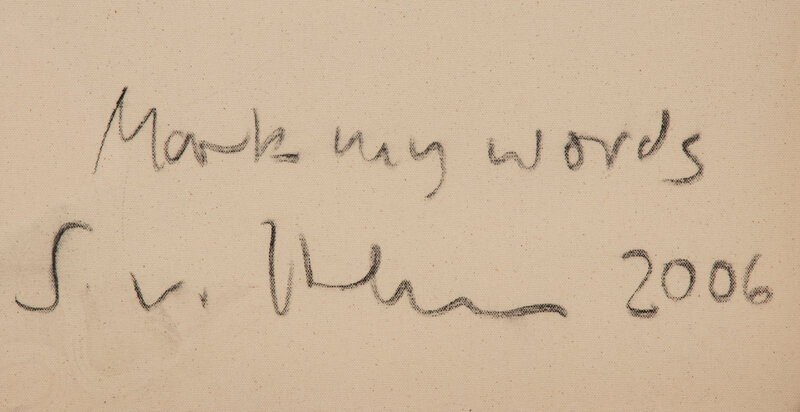 Mark my words
S. v. 2006